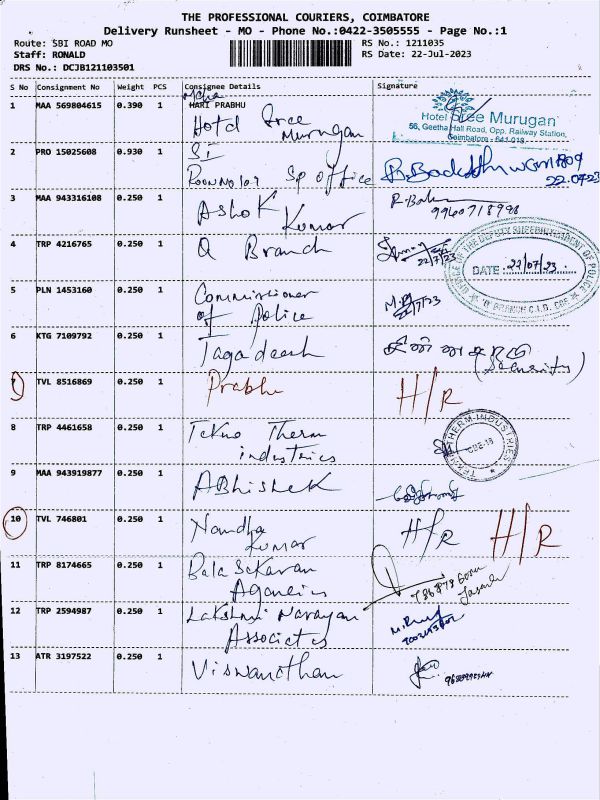 THE PROFESSIONAL COURIERS, COIMBATORE
Delivery Runsheet - MO - Phone No.:0422-3505555 - Page No.:1
Route: SBI ROAD MO RS No.: 1211035
Staff: RONALD RS Date: 22-Jul-2023
DRS No.: DCJB121103501
S No Consignment No Weight PCS Consignee Details Signature
1 MAA 569804615 0.390 1 HARI PRABHU
Hotel Sree
Murugan
Hotel Sree Murugan
56, Geetha Hall Road, Opp. Railway Station,
Coimbatore - 641 018.
2 PRO 15025608 0.930 1 SI
Room No 109 SP office
22.07.23
3 MAA 943316108 0.250 1 Ashok
Kumar
4 TRP 4216765 0.250 1 Q Branch
22/7/23
OFFICE OF THE DEPUTY SUPERINTENDENT OF POLICE
DATE: 22/07/23
'Q' BRANCH C.I.D. CBE
5 PLN 1453160 0.250 1 Commissioner
of Police
22/7/23
6 KTG 7109792 0.250 1 Jagadeesh
(Security)
7 TVL 8516869 0.250 1 Prabhu H/R
8 TRP 4461658 0.250 1 Tekno Therm
industries
TEKNO THERM INDUSTRIES
CBE-18
9 MAA 943919877 0.250 1 ABhishek
10 TVL 746801 0.250 1 Nandha
Kumar
H/R H/R
11 TRP 8174665 0.250 1 Bala Sekaran
Agencies
12 TRP 2594987 0.250 1 Lakshmi Narayan
Associates
13 ATR 3197522 0.250 1 Viswanathan